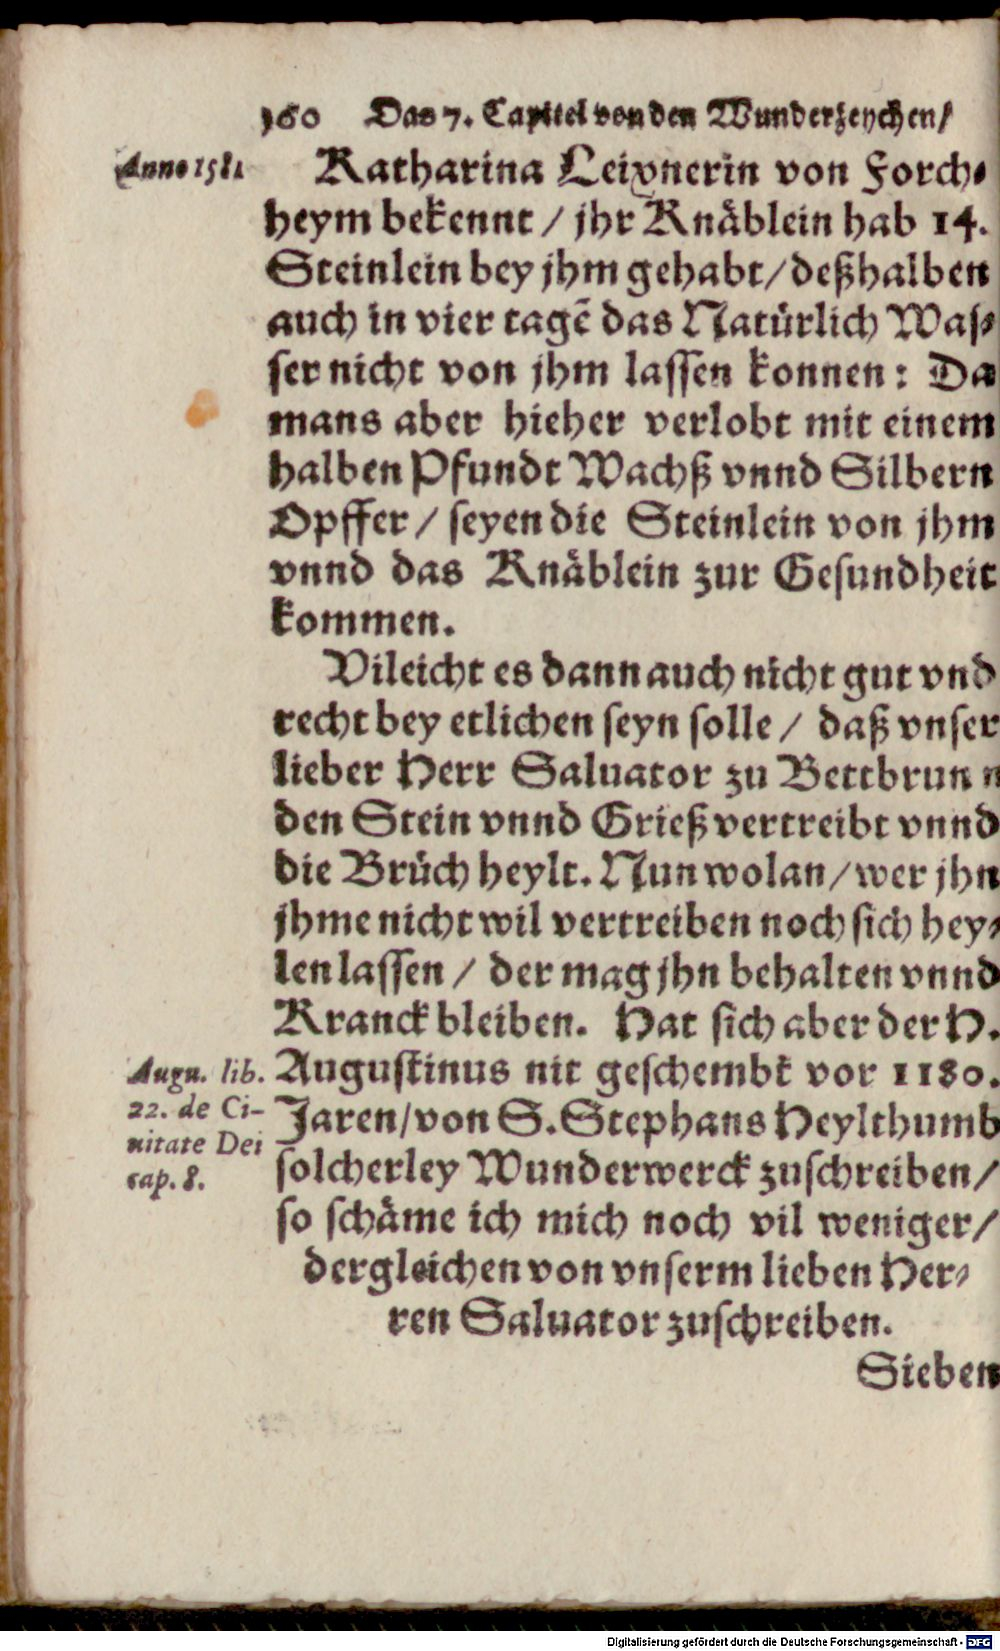 160 Das 7. Capitel von den Wunderzeychen/
Anno 1581
Katharina Leixnerin von Forch⸗
heym bekennt / jhr Knäblein hab 14.
Steinlein bey jhm gehabt/deßhalben
auch in vier tagẽ das Natürlich Was⸗
ser nicht von jhm lassen konnen: Da
mans aber hieher verlobt mit einem
halben Pfundt Wachß vnnd Silbern
Opffer / seyen die Steinlein von jhm
vnnd das Knäblein zur Gesundheit
kommen.
Vileicht es dann auch nicht gut vnd
recht bey etlichen seyn solle / daß vnser
lieber Herr Saluator zu Bettbrunn
den Stein vnnd Grieß vertreibt vnnd
die Brüch heylt. Nun wolan/wer jhn
jhme nicht wil vertreiben noch sich hey⸗
len lassen / der mag jhn behalten vnnd
Kranck bleiben. Hat sich aber der H.
Augustinus nit geschembt vor 1180.
Jaren/von S. Stephans Heylthumb
solcherley Wunderwerck zuschreiben/
so schäme ich mich noch vil weniger/
dergleichen von vnserm lieben Her⸗
ren Saluator zuschreiben.
Augu. lib.
22. de Ci-
uitate Dei
cap. 8.
Sieben
Digitalisierung gefördert durch die Deutsche Forschungsgemeinschaft - DFG